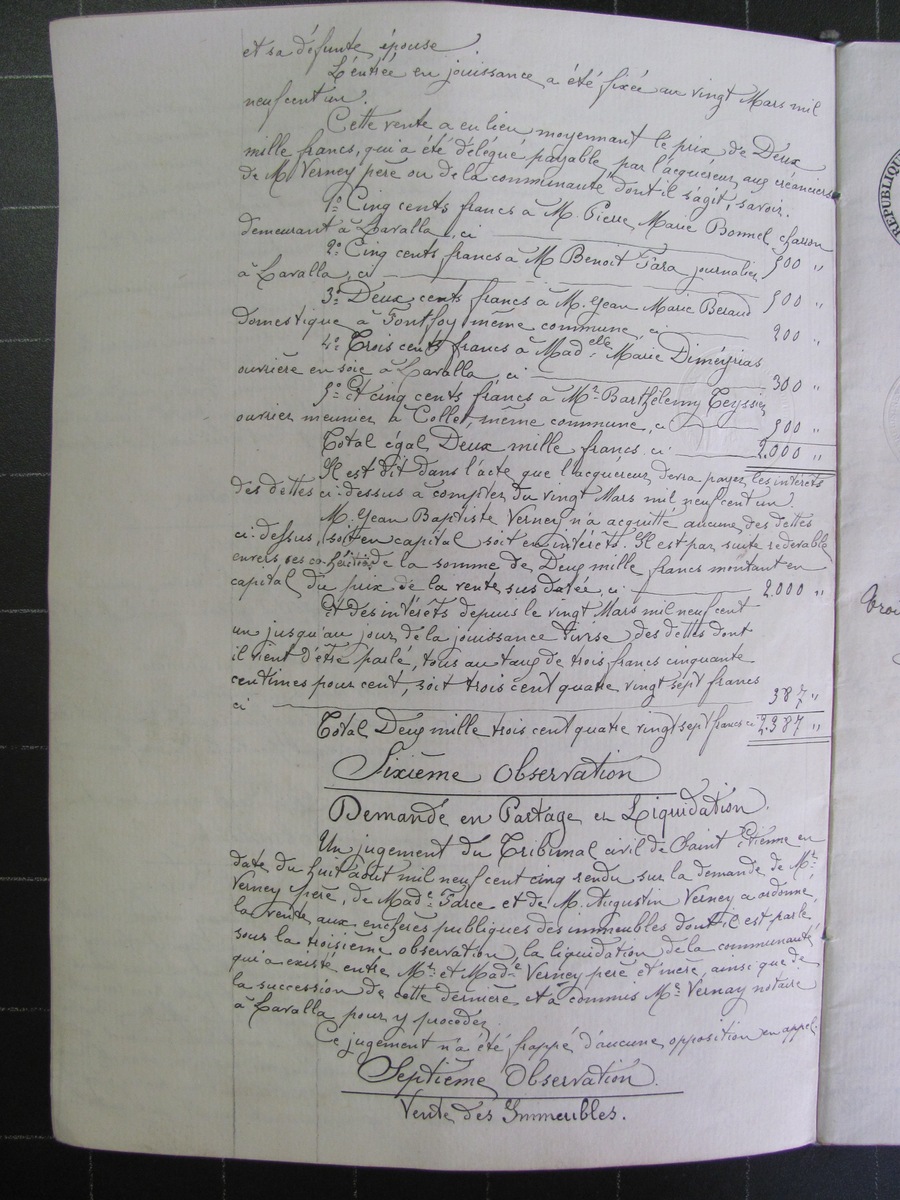 et sa défunte épouse.
L'entrée en jouissance a été fixée au vingt Mars mil
neuf cent un.
Cette vente a eu lieu moyennant le prix de Deux
mille francs, qui a été délégué payable par l'acquéreur aux créanciers
de M. Verney père ou de la communauté dont il s'agit, savoir.
1º Cinq cents francs à M. Pierre Marie Bonnel charron
demeurant à Lavalla, ci 500 "
2º Cinq cents francs à M Benoit Fara journalier
à Lavalla, ci 500 "
3º Deux cents francs à M. Jean Marie Beraud
domestique à Fontfoy même commune, ci 200 "
4º Trois cents francs à Madelle Marie Dimeyrias
ouvrière en soie à Lavalla, ci 300 "
5º Et cinq cents francs à Mr Barthélemy Teyssier
ouvrier meunier à Collet, même commune, ci 500 "
Total égal Deux mille francs. ci 2.000 "
Il est dit dans l'acte que l'acquéreur devra payer les intérêts
des dettes ci-dessus à compter du vingt Mars mil neuf cent un.
M. Jean Baptiste Verney n'a acquitté aucune des dettes
ci-dessus, soit en capital soit en intérêts. Il est par suite redevable
envers ses co-héritiers de la somme de Deux mille francs montant en
capital du prix de la vente sus datée, ci 2.000 "
Et des intérêts depuis le vingt Mars mil neuf cent
un jusqu'au jour de la jouissance divise, des dettes dont
il vient d'être parlé, tous au taux de trois francs cinquante
centimes pour cent, soit trois cent quatre vingt sept francs
ci 387 "
Total Deux mille trois cent quatre vingt sept francs ci 2.387 "
Sixième Observation
Demande en Partage en Liquidation.
Un jugement du Tribunal civil de Saint Etienne en
date du huit août mil neuf cent cinq rendu sur la demande de Mr
Verney père, de Made Farce et de M. Augustin Verney a ordonné
la vente aux enchères publiques des immeubles dont il est parlé
sous la troisième observation, la liquidation de la communauté
qui a existé entre Mr et Made Verney père et mère, ainsi que de
la succession de cette dernière et a commis Me Vernay notaire
à Lavalla pour y procéder.
Ce jugement n'a été frappé d'aucune opposition en appel.
Septième Observation.
Vente des Immeubles.
REPUBLIQUE